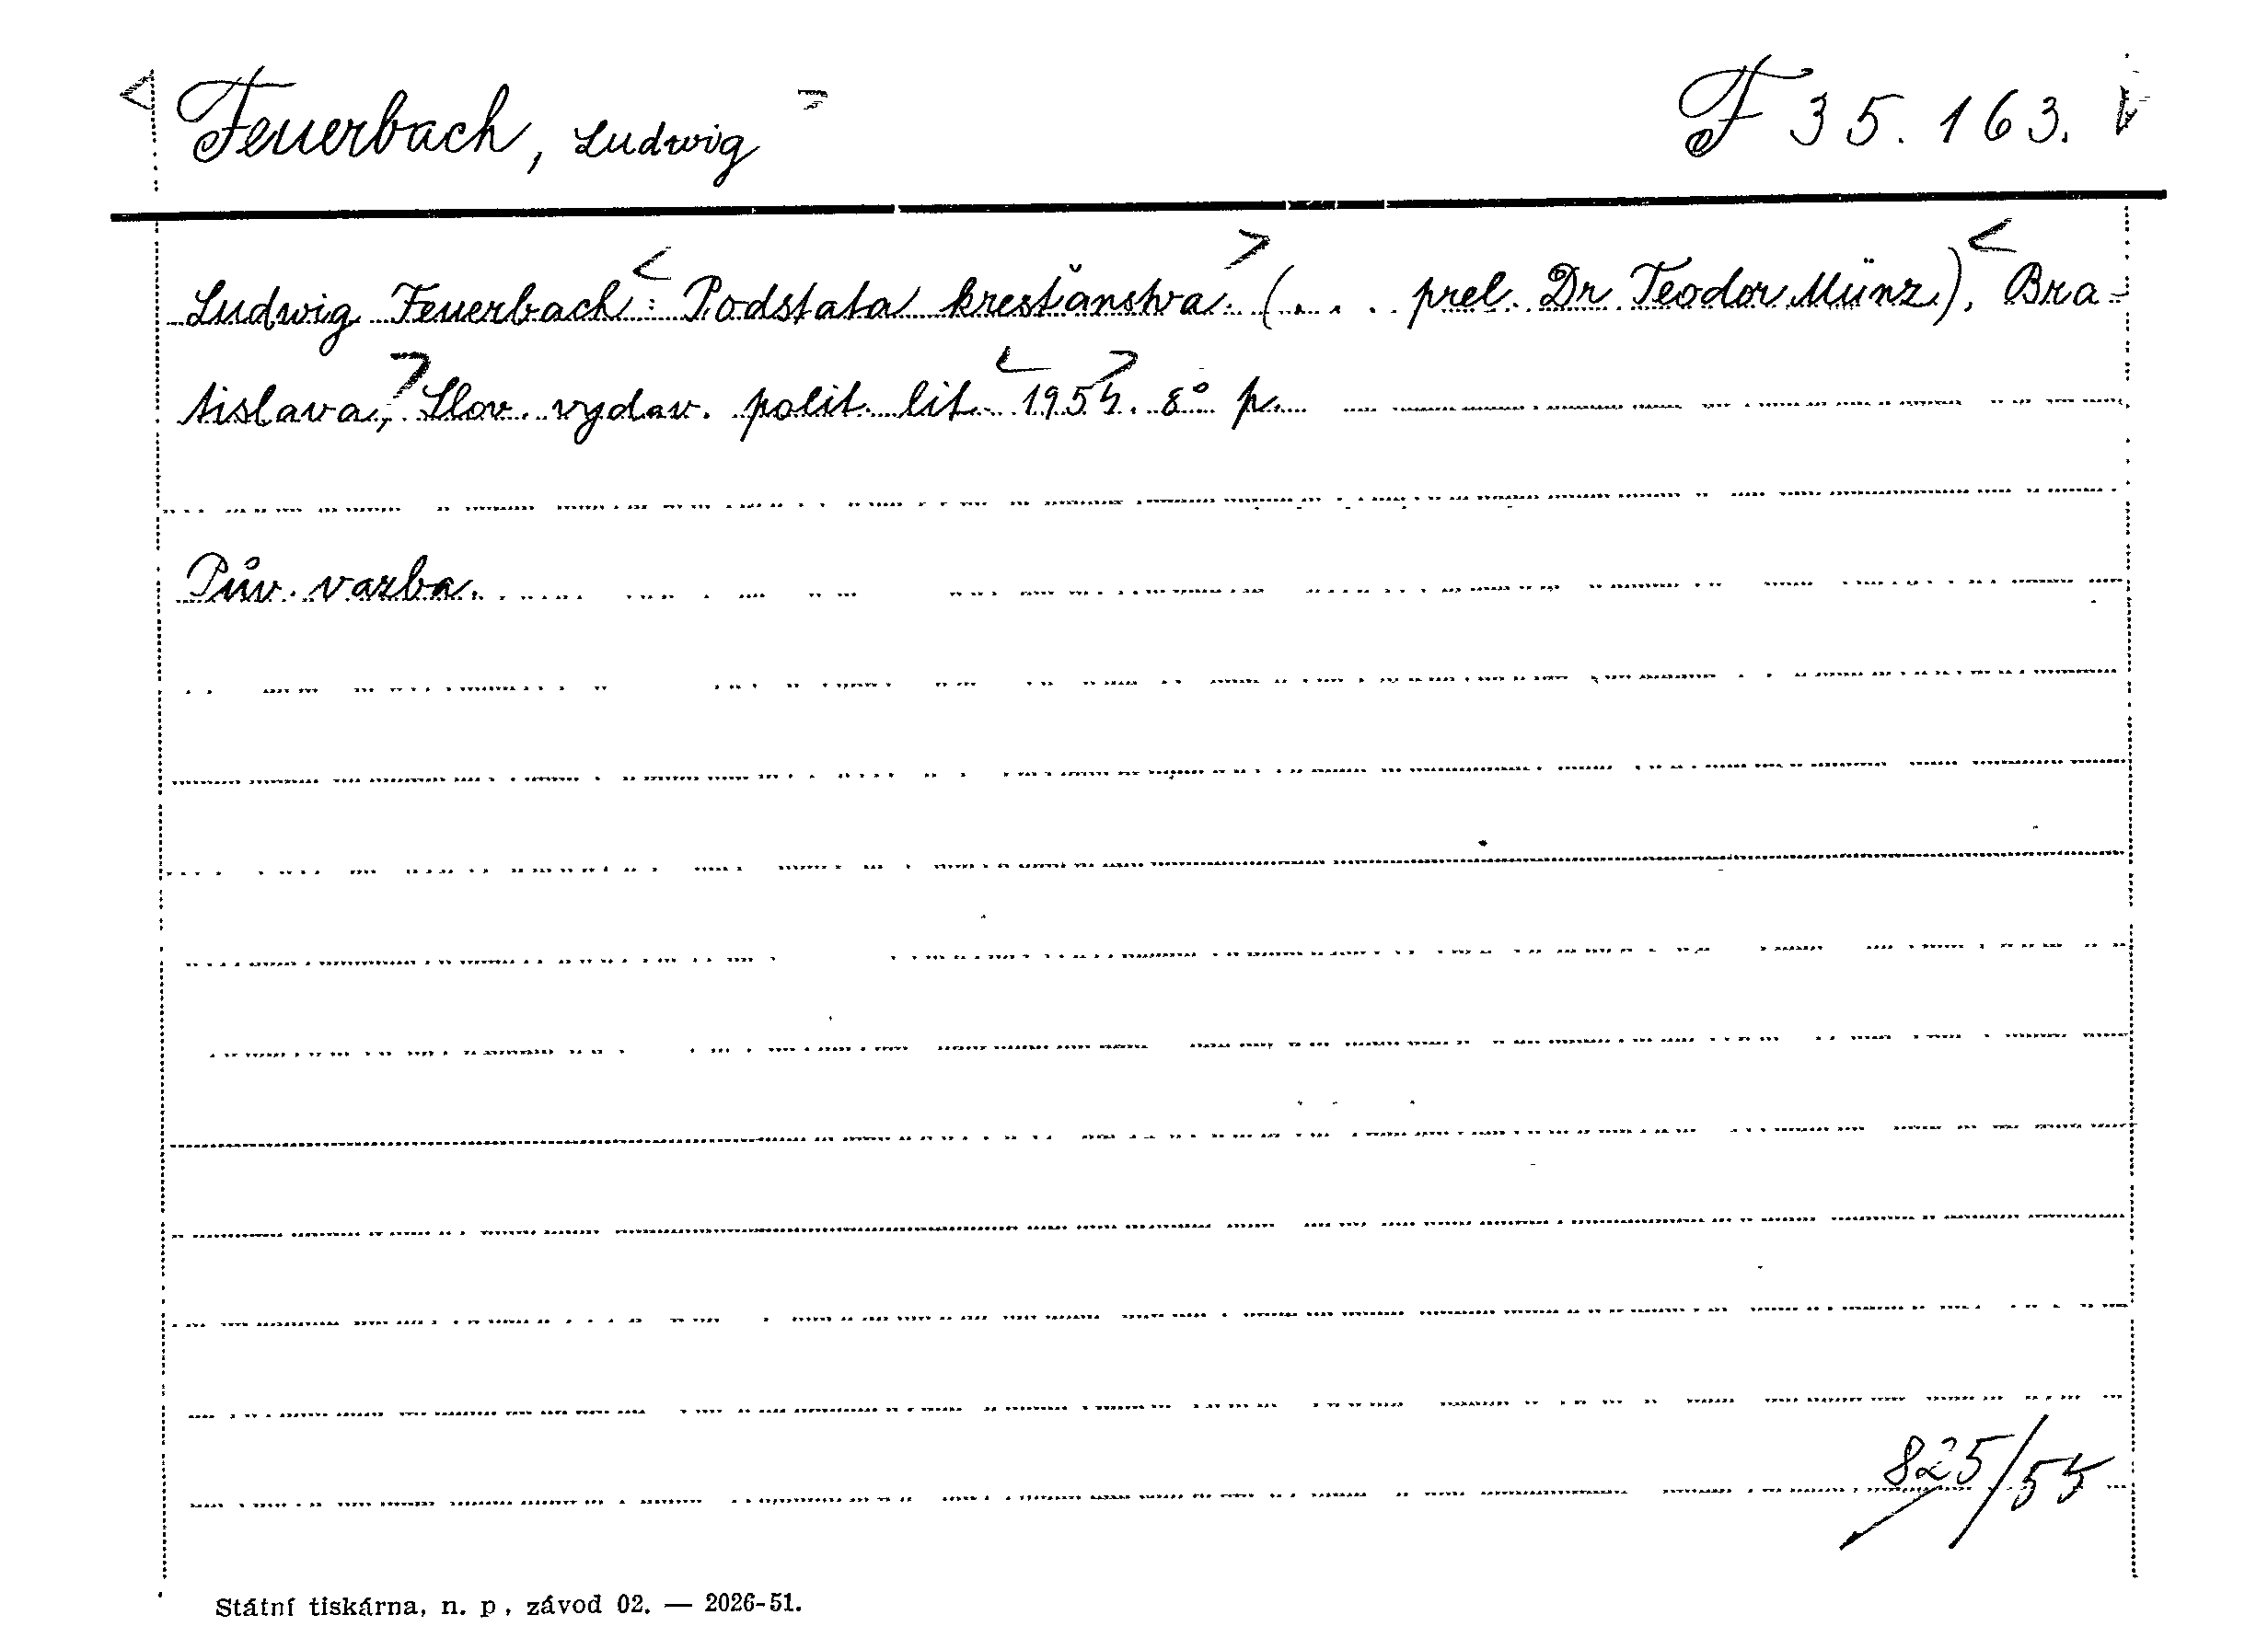 Feuerbach, Ludwig F 35.163.
Ludwig Feuerbach: Podstata kresťanstva. (... prel. Dr Teodor Münz), Bra-
tislava, Slov. vydav. polit. lit. 1954. 8° p.
Pův. vazba.
825/55
Státní tiskárna, n. p., závod 02. — 2026-51.